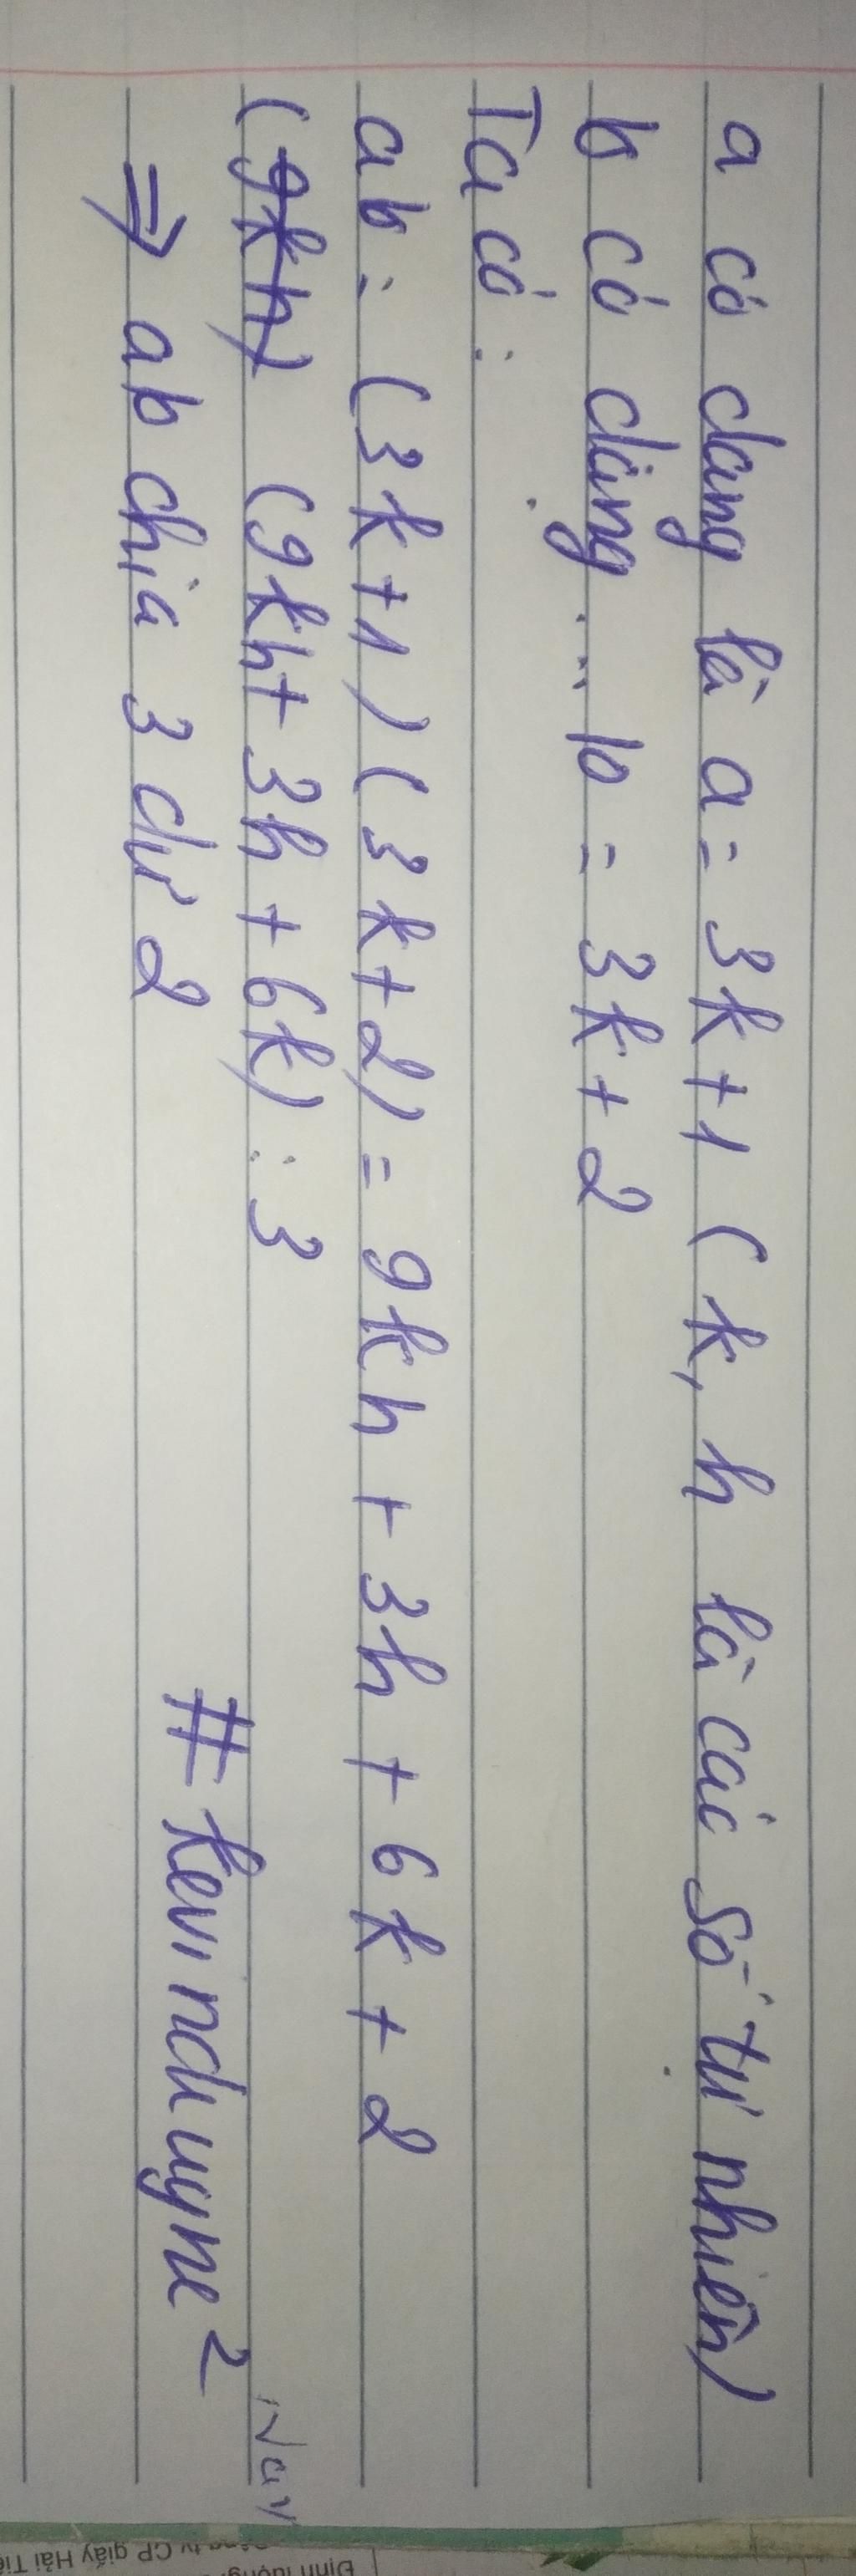 a có dạng là a = 3k+1 (k, h là các số tự nhiên)
b có dạng ... b = 3k+2
Ta có:
ab = (3k+1)(3k+2) = 9kh + 3h + 6k + 2
(9kh) (9kh + 3h + 6k) : 3
⇒ ab chia 3 dư 2
#kevinduyne²
Định lượng
CP giấy Hải Tiế